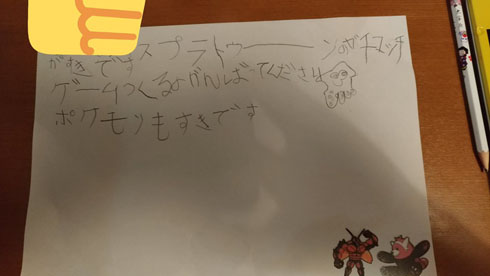 スプラトゥーーーンのガチマッチ
がすきです
ゲームつくるよがんばってください
ポケモンもすきです